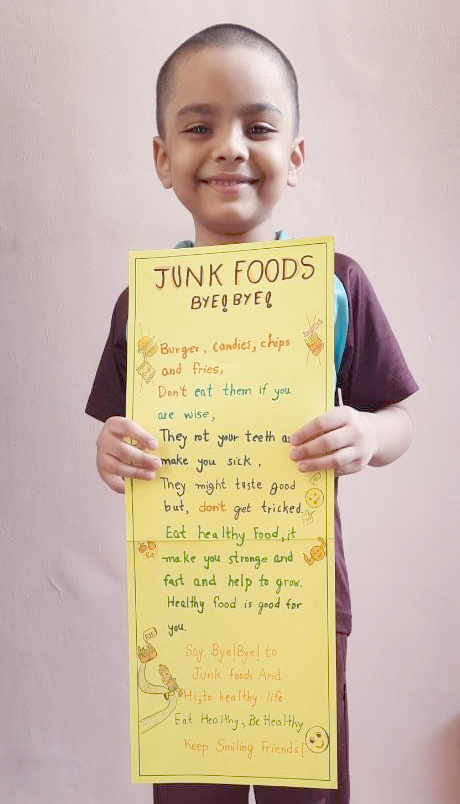 JUNK FOODS
BYE! BYE!
Burger, candies, chips
and fries,
Don't eat them if you
are wise,
They rot your teeth an
make you sick,
They might taste good
but, don't get tricked.
Eat healthy Food, it
make you stronge and
fast and help to grow.
Healthy food is good for
you.
Say Bye!Bye! to
Junk foods And
Hi, to healthy life.
Eat Healthy, Be Healthy
Keep Smiling Friends!